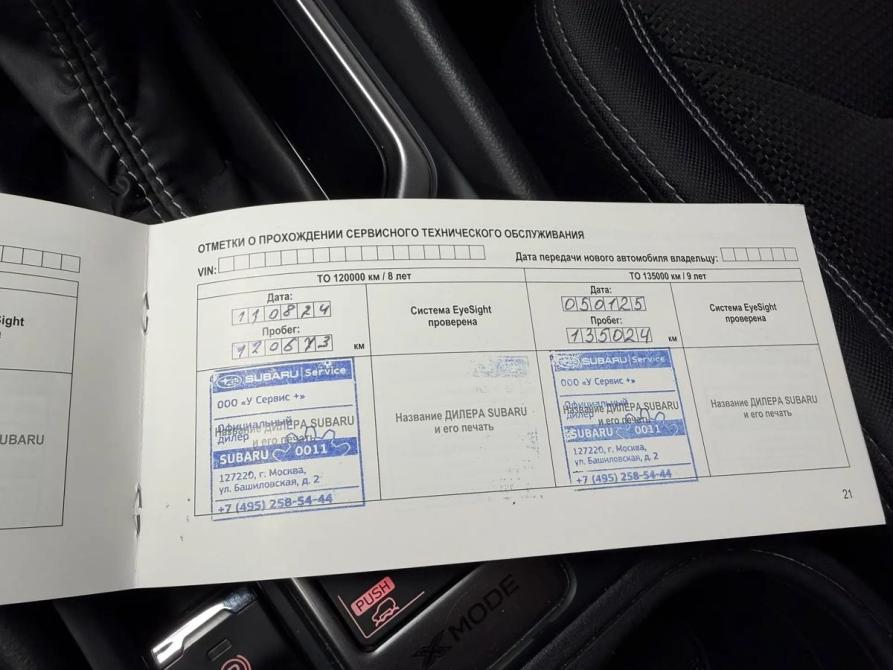 ОТМЕТКИ О ПРОХОЖДЕНИИ СЕРВИСНОГО ТЕХНИЧЕСКОГО ОБСЛУЖИВАНИЯ
VIN:
Дата передачи нового автомобиля владельцу:
ТО 120000 км / 8 лет
ТО 135000 км / 9 лет
Дата:
110824
Пробег:
120673 км
Система EyeSight
проверена
Дата:
050125
Пробег:
135024 км
Система EyeSight
проверена
SUBARU Service
ООО «У Сервис +»
Официальный
дилер
Название ДИЛЕРА SUBARU
и его печать
SUBARU 0011
127220, г. Москва,
ул. Башиловская, д. 2
+7 (495) 258-54-44
Название ДИЛЕРА SUBARU
и его печать
SUBARU Service
ООО «У Сервис +»
Официальный
дилер
Название ДИЛЕРА SUBARU
и его печать
SUBARU 0011
127220, г. Москва,
ул. Башиловская, д. 2
+7 (495) 258-54-44
Название ДИЛЕРА SUBARU
и его печать
21
ight
UBARU
PUSH
X MODE